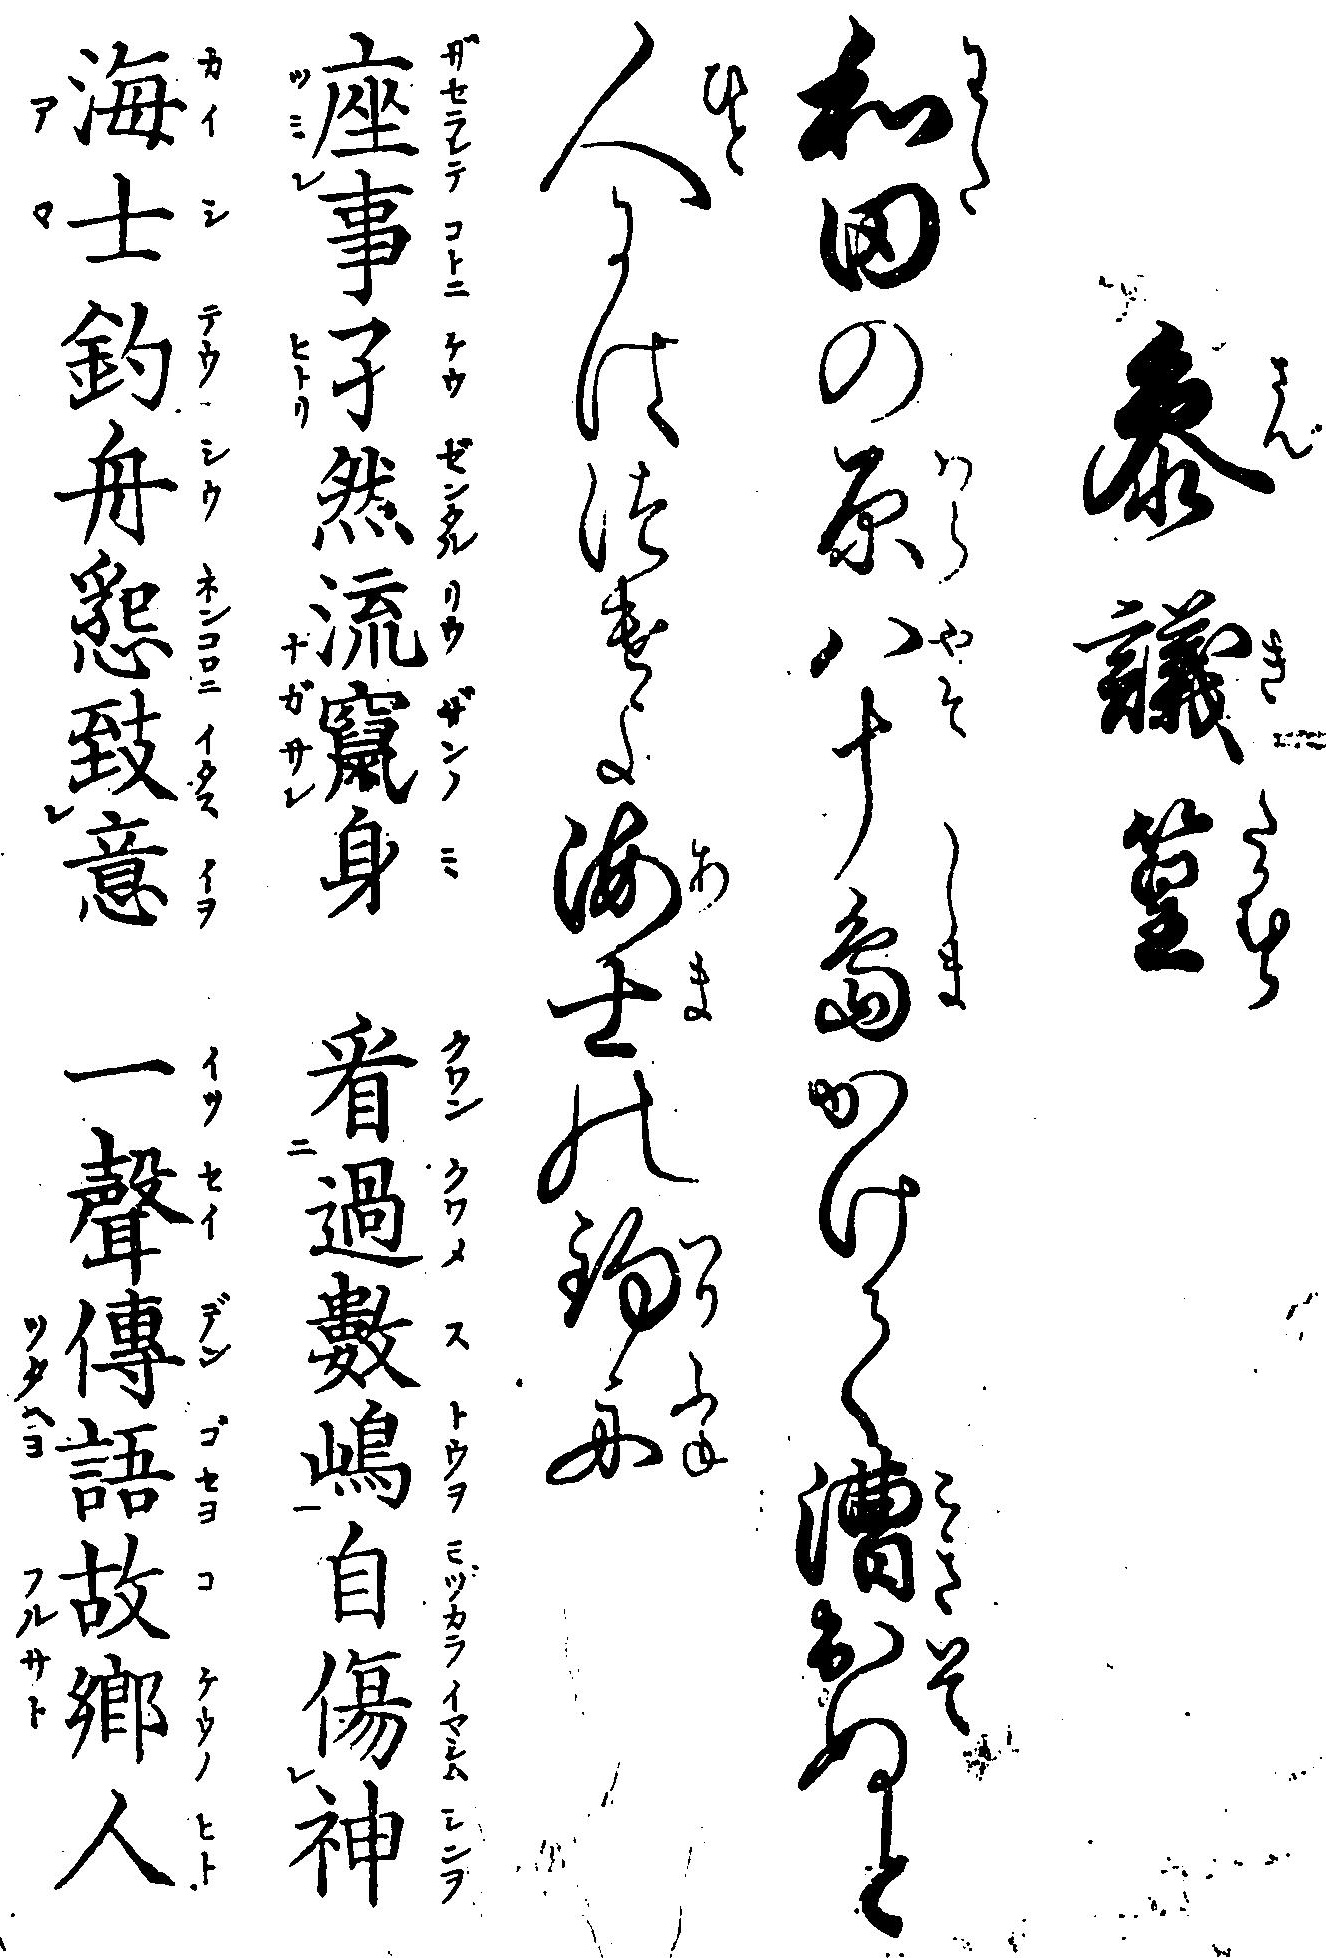 参議篁
和田の原八十島かけて漕出ぬと
人にはつげよ海士の釣舟
座事孑然流竄身　看過數嶋自傷神
海士釣舟懇致意　一聲傳語故郷人